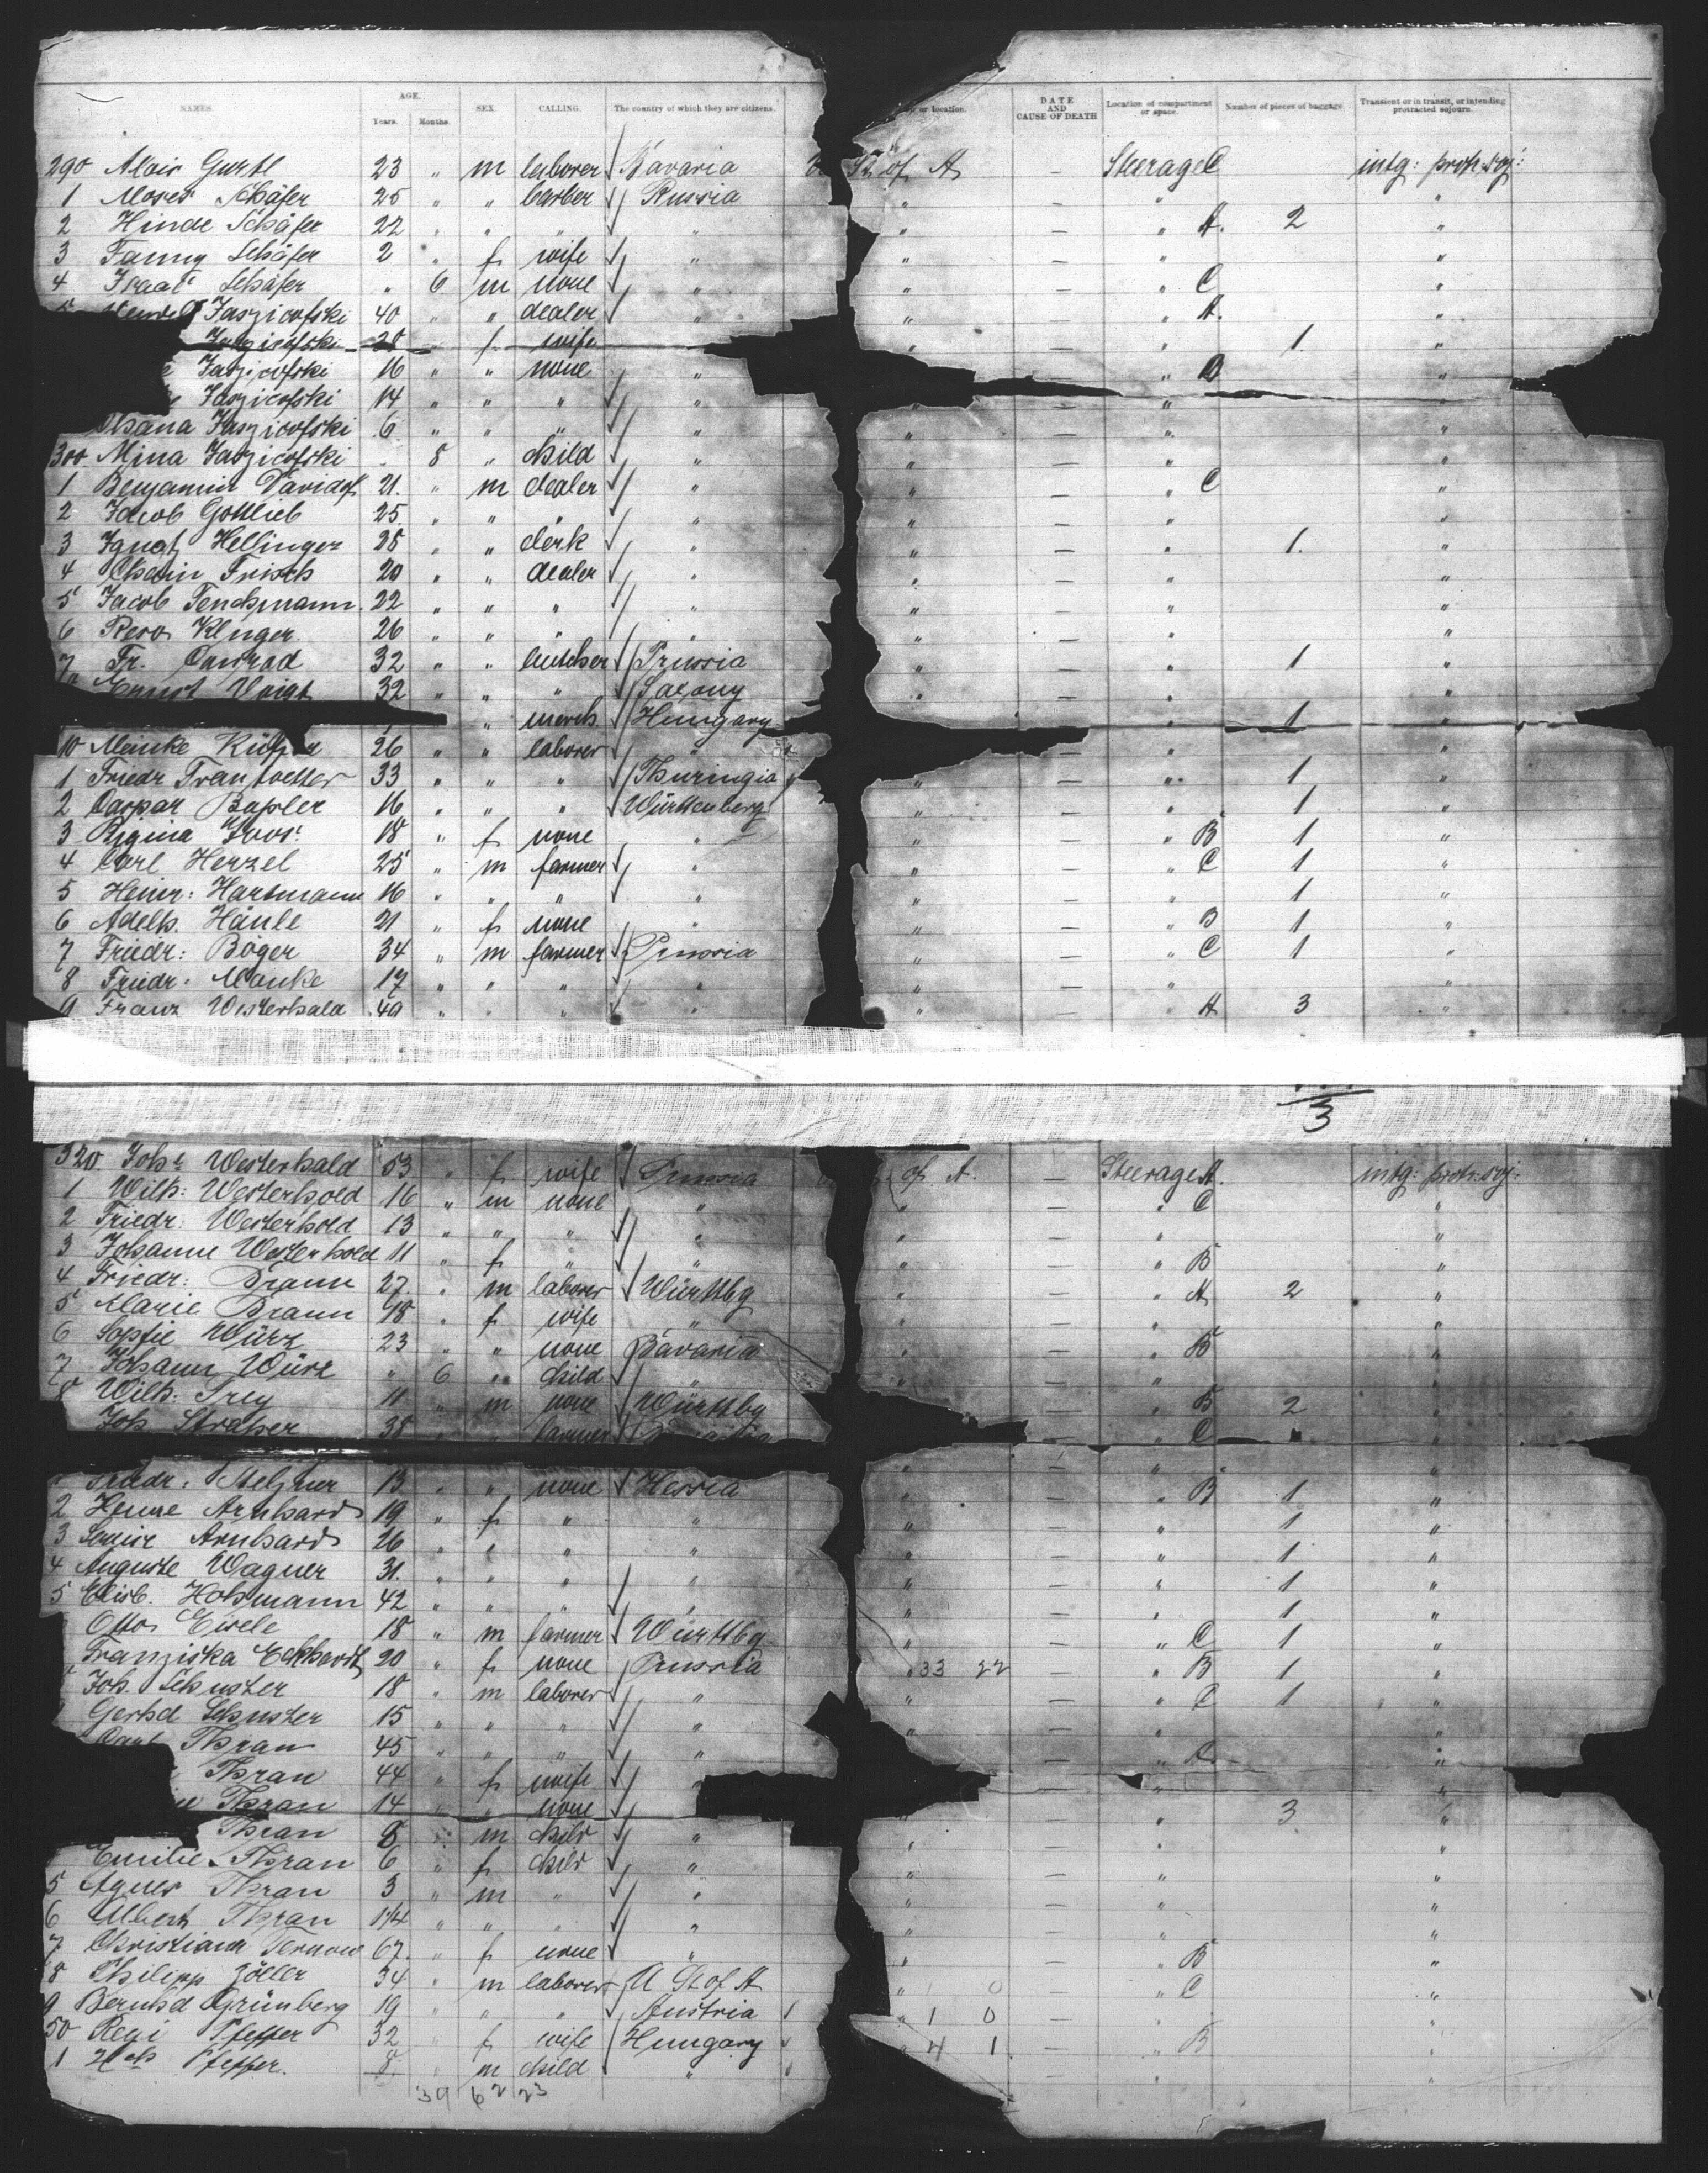 NAMES. AGE. Years. Months. SEX. CALLING. The country of which they are citizens. or location. DATE AND CAUSE OF DEATH Location of compartment or space. Number of pieces of baggage. Transient or in transit, or intending protracted sojourn.
290 Alois Gurtl 23 " m laborer Bavaria St of A — Steerage C intg: protr: soj:
1 Moses Schäfer 25 " " barber Russia " — " "
2 Hinde Schäfer 22 " " " " " — " A. 2 "
3 Fanny Schäfer 2 " f wife " " — " "
4 Isaac Schäfer " 6 m none " " — " C "
5 Jaszicofski 40 " " dealer " " — " A. "
Jaszicofski 28 " f wife " — " 1. "
Jaszicofski 16 " " none " " B "
Jaszicofski 14 " " " " " — " "
Chana Jaszicofski 6 " " " " " — " "
300 Mina Jaszicofski 8 " child " " — " "
1 Benjamin Davidoff 21. " m dealer " " — " C "
2 Jacob Gottlieb 25 " " " " " — " "
3 Ignatz Hellinger 25 " " clerk " " — " 1. "
4 Chaim Frisch 20 " " dealer " " — " "
5 Jacob Tenckmann 22 " " " " " — " "
6 Kluger 26 " " " " " — " "
7 Fr. Conrad 32 " " butcher Prussia " — " 1 "
Ernst Voigt 32 " " " Saxony " — " "
" merch. Hungary " 1 "
10 Manke 26 " " laborer " — " "
1 Friedr 33 " " " Thuringia " — " 1 "
2 Caspar Bapler 16 " " " Württenberg " — " 1 "
3 Regina Joos 18 " f none " " — " B 1 "
4 Carl Herzel 25 " m farmer " " — " C 1 "
5 Heinr: Hartmann 16 " " " " " — " 1 "
6 Adelh. Hänle 21 " f none " — " B 1 "
7 Friedr: Böger 34 " m farmer Prussia " — " C 1 "
8 Friedr: Manke 17 " " " " " — " "
9 Franz Westerhald 49 " " " " " — " A 3 "
3
320. Johe Westerhald 53 " f wife Prussia of A. — Steerage A. intg: protr: soj:
1 Wilh: Westerhold 16 " m none " " — " C "
2 Friedr: Westerhold 13 " " " " " — " "
3 Johanne Westerhold 11 " f " " " — " B "
4 Friedr: Braun 27. " m laborer Württbg " — " A 2 "
5 Marie Braun 18 " f wife " " — " "
6 Sophie Würz 23 " " none Bavaria " — " B "
7 Johann Würz " 6 " child " " — " "
8 Wilh. Frey 11 " m none Württbg — " B 2 "
Joh Straher 38 " farmer " C
1 Friedr: Melzner 13 " " none Hessia " — " B 1 "
2 Henne Arnhard 19 " f " " " — " 1 "
3 Louise Arnhard 26 " " " " " — " 1 "
4 Auguste Wagner 31. " " " " " — " 1 "
5 Elisb. Hohmann 42 " " " " " — " 1 "
Otto Eisele 18 " m farmer Württbg " — " C 1 "
Franziska Eckhardt 20 " f none Prussia " 33 22 — " B 1 "
Joh. Schuster 18 " m laborer " " — " C 1 "
Gerhd Schuster 15 " " " " " — " "
Carl Thran 45 " " " " — " "
Thran 44 " f wife " — " "
Thran 14 " none " — " 3 "
Thran 8 " m child " " — " "
Emilie Thran 6 " f child " " — " "
5 Agnes Thran 3 " m " " " — " "
6 Albert Thran 1 1/4 " " " " " — " "
7 Christiana Ternow 67. " f none " " — " B "
8 Philipp Zöller 34 " m laborer U St of A " 0 — " C "
9 Bernhd Grünberg 19 " " " Austria " 1 0 — " "
50 Regi Pfeffer 32 " f wife Hungary " 4 1 — " B "
1 Pfeffer. 8 " m child " — " "
39 62 23